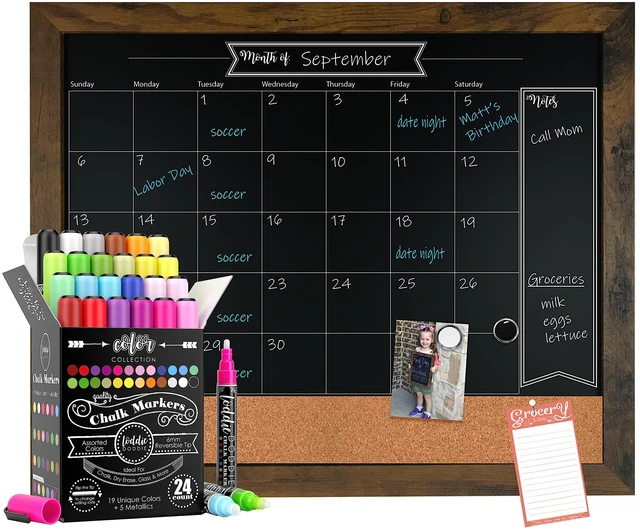 Month of: September
Sunday Monday Tuesday Wednesday Thursday Friday Saturday
Notes
1 2 3 4 5
soccer date night Matt's Birthday
Call Mom
6 7 8 9 10 11 12
Labor Day soccer
13 14 15 16 17 18 19
soccer date night
23 24 25 26
soccer
Groceries
milk
eggs
lettuce
29 30
soccer
color
COLLECTION
quality
Chalk Markers
Assorted Colors
loddie
DOODLE
6mm Reversible Tip
Ideal For
Chalk, Dry Erase, Glass & More
19 Unique Colors
+ 5 Metallics
24
count
Chalk Markers
loddie
GROCERY